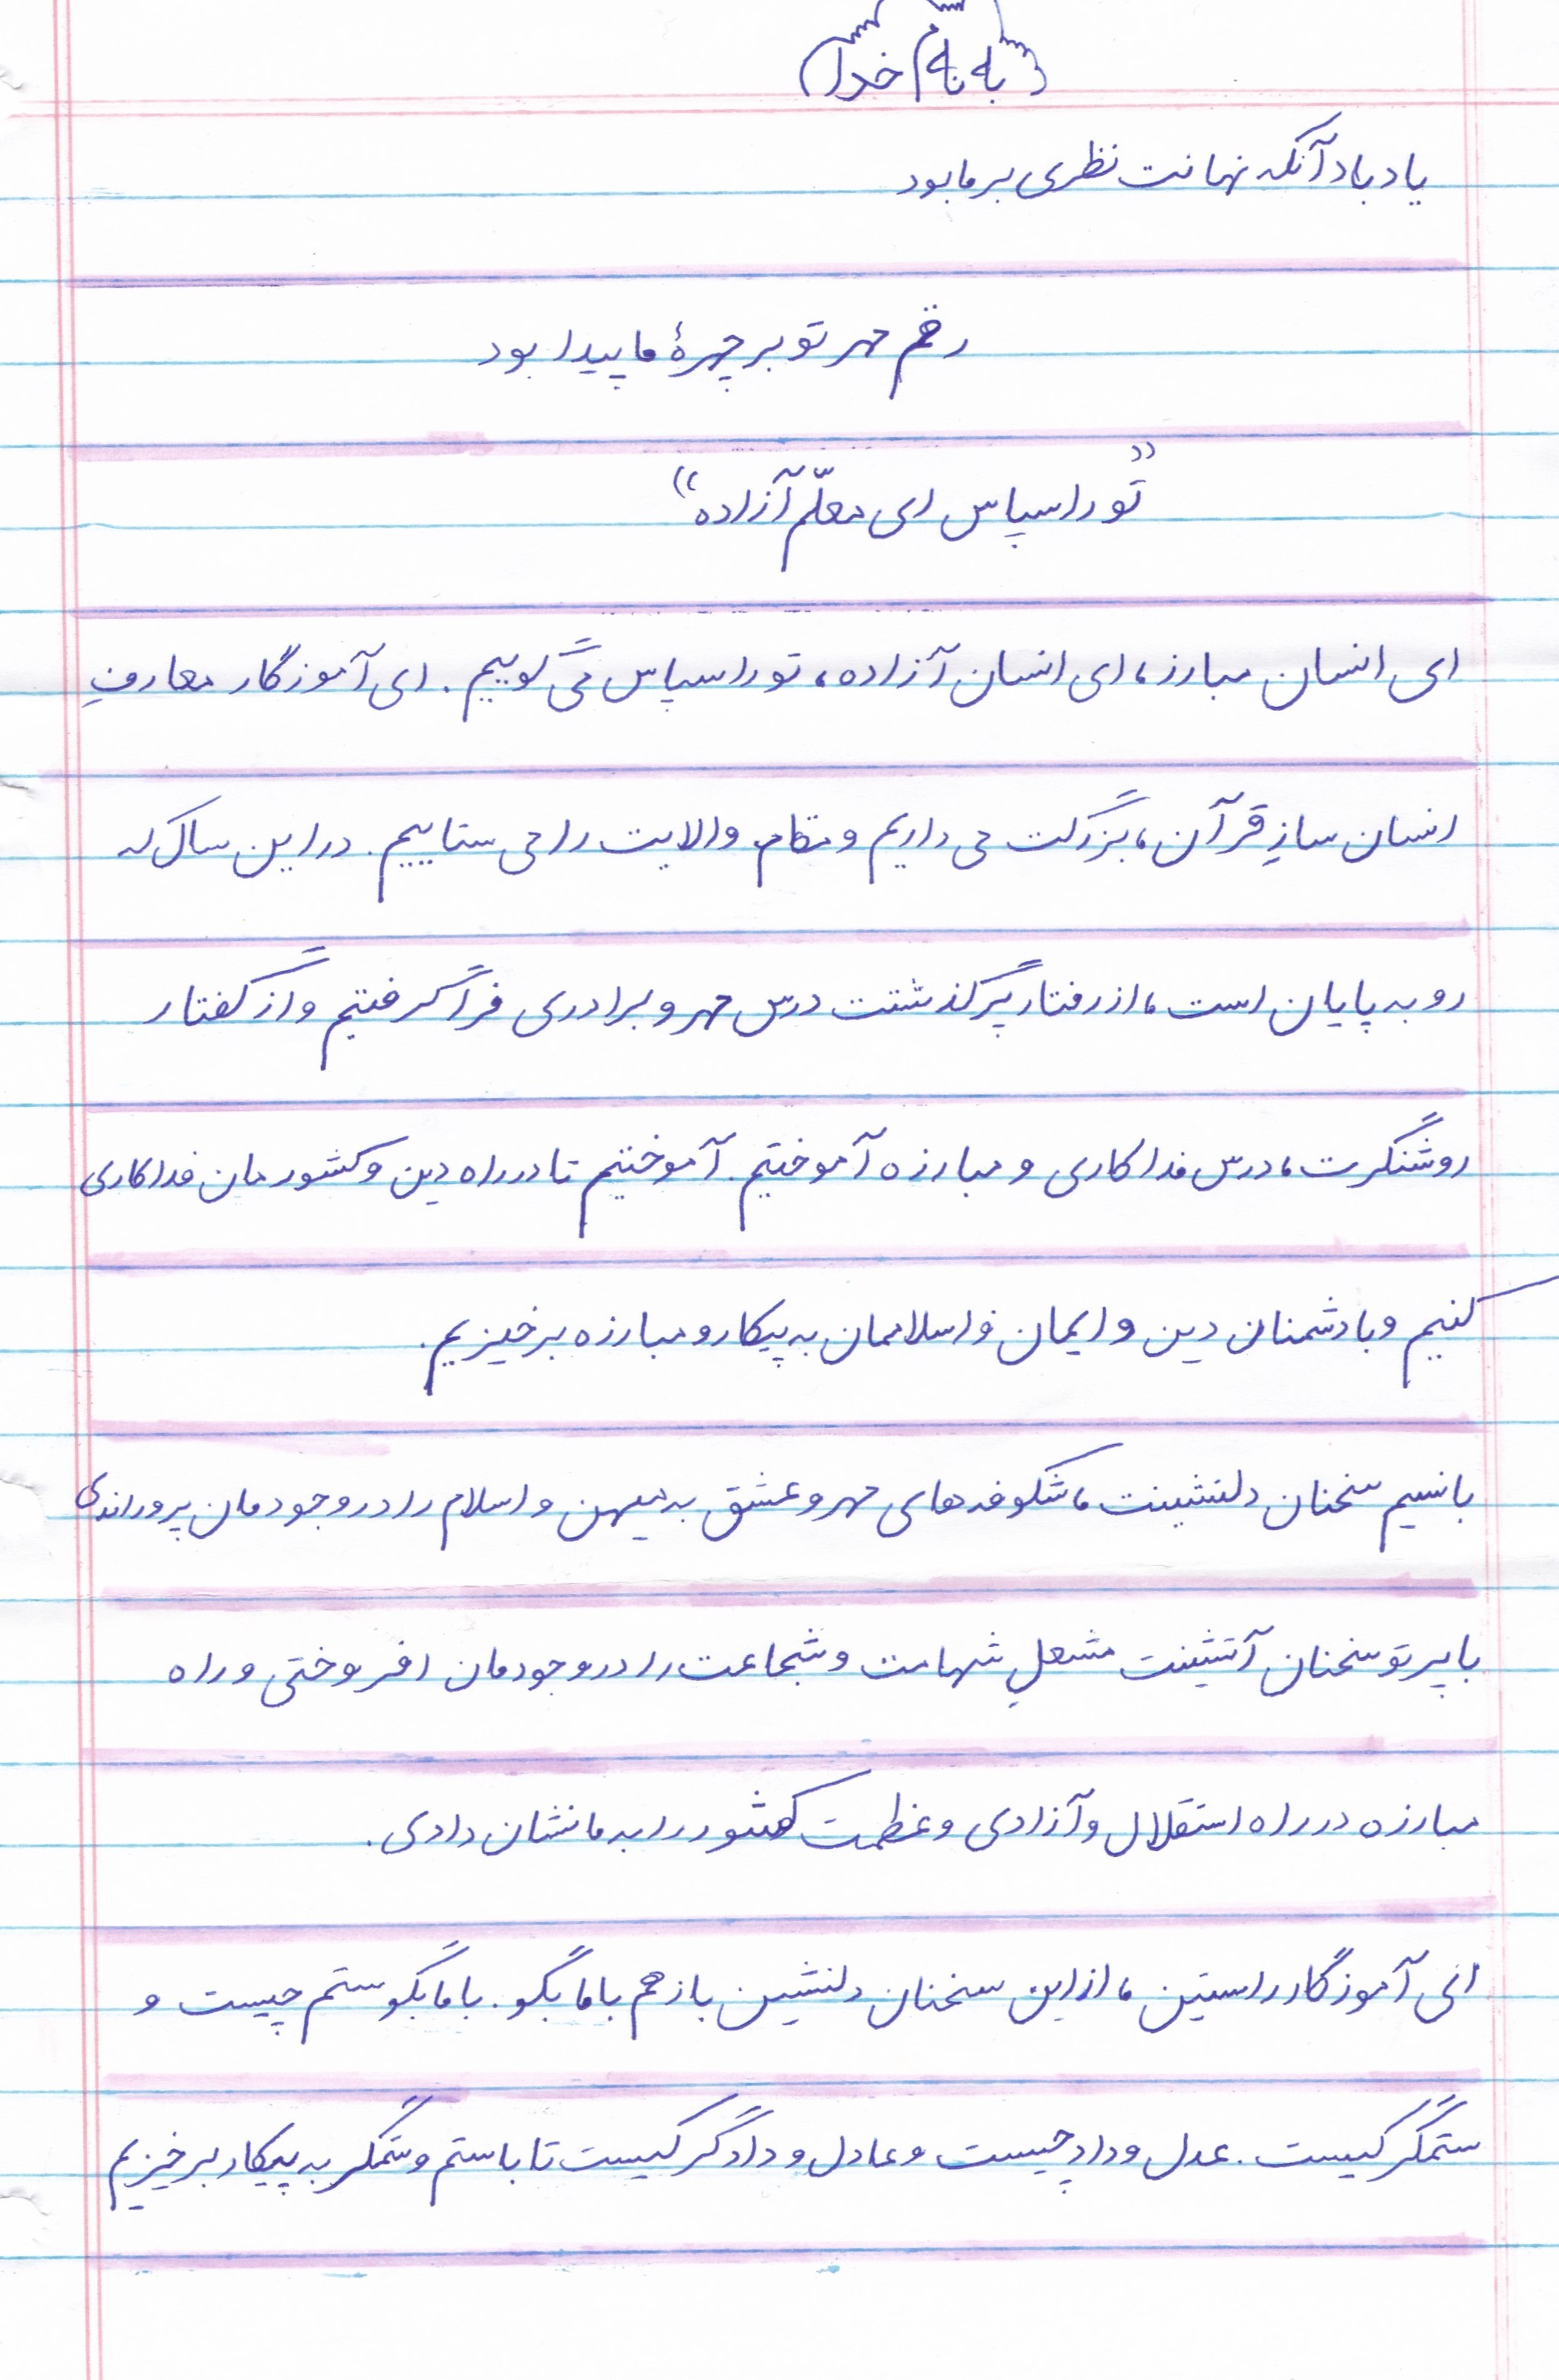 به نام خدا
یاد باد آنکه نهانت نظری بر ما بود
رقم مهر تو بر چهرهٔ ما پیدا بود
"تو را سپاس ای معلّم آزاده"
ای انسان مبارز، ای انسان آزاده، تو را سپاس می گوییم. ای آموزگار معارفِ
انسان سازِ قرآن، بزرگت می داریم و مقام والایت را می ستاییم. در این سال که
رو به پایان است، از رفتار پرگذشتت درس مهر و برادری فرا گرفتیم و از گفتار
روشنگرت، درس فداکاری و مبارزه آموختیم. آموختیم تا در راه دین و کشورمان فداکاری
کنیم و با دشمنان دین و ایمان و اسلاممان به پیکار و مبارزه برخیزیم.
با نسیم سخنان دلنشینت، شکوفه های مهر و عشق به میهن و اسلام را در وجودمان پروراندی
با پرتو سخنان آتشینت مشعلِ شهامت و شجاعت را در وجودمان افروختی و راه
مبارزه در راه استقلال و آزادی و عظمت کشور را به ما نشان دادی.
ای آموزگار راستین، از این سخنان دلنشین باز هم با ما بگو. با ما بگو ستم چیست و
ستمگر کیست. عدل و داد چیست و عادل و دادگر کیست تا با ستم و ستمگر به پیکار برخیزیم